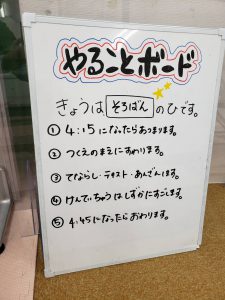 やることボード
きょうは そろばん のひです。
① 4:15になったらあつまります。
② つくえのまえにすわります。
③ てならし・テキスト・あんざんします。
④ けんていちゅうはしずかにすごします。
⑤ 4:45になったらおわります。